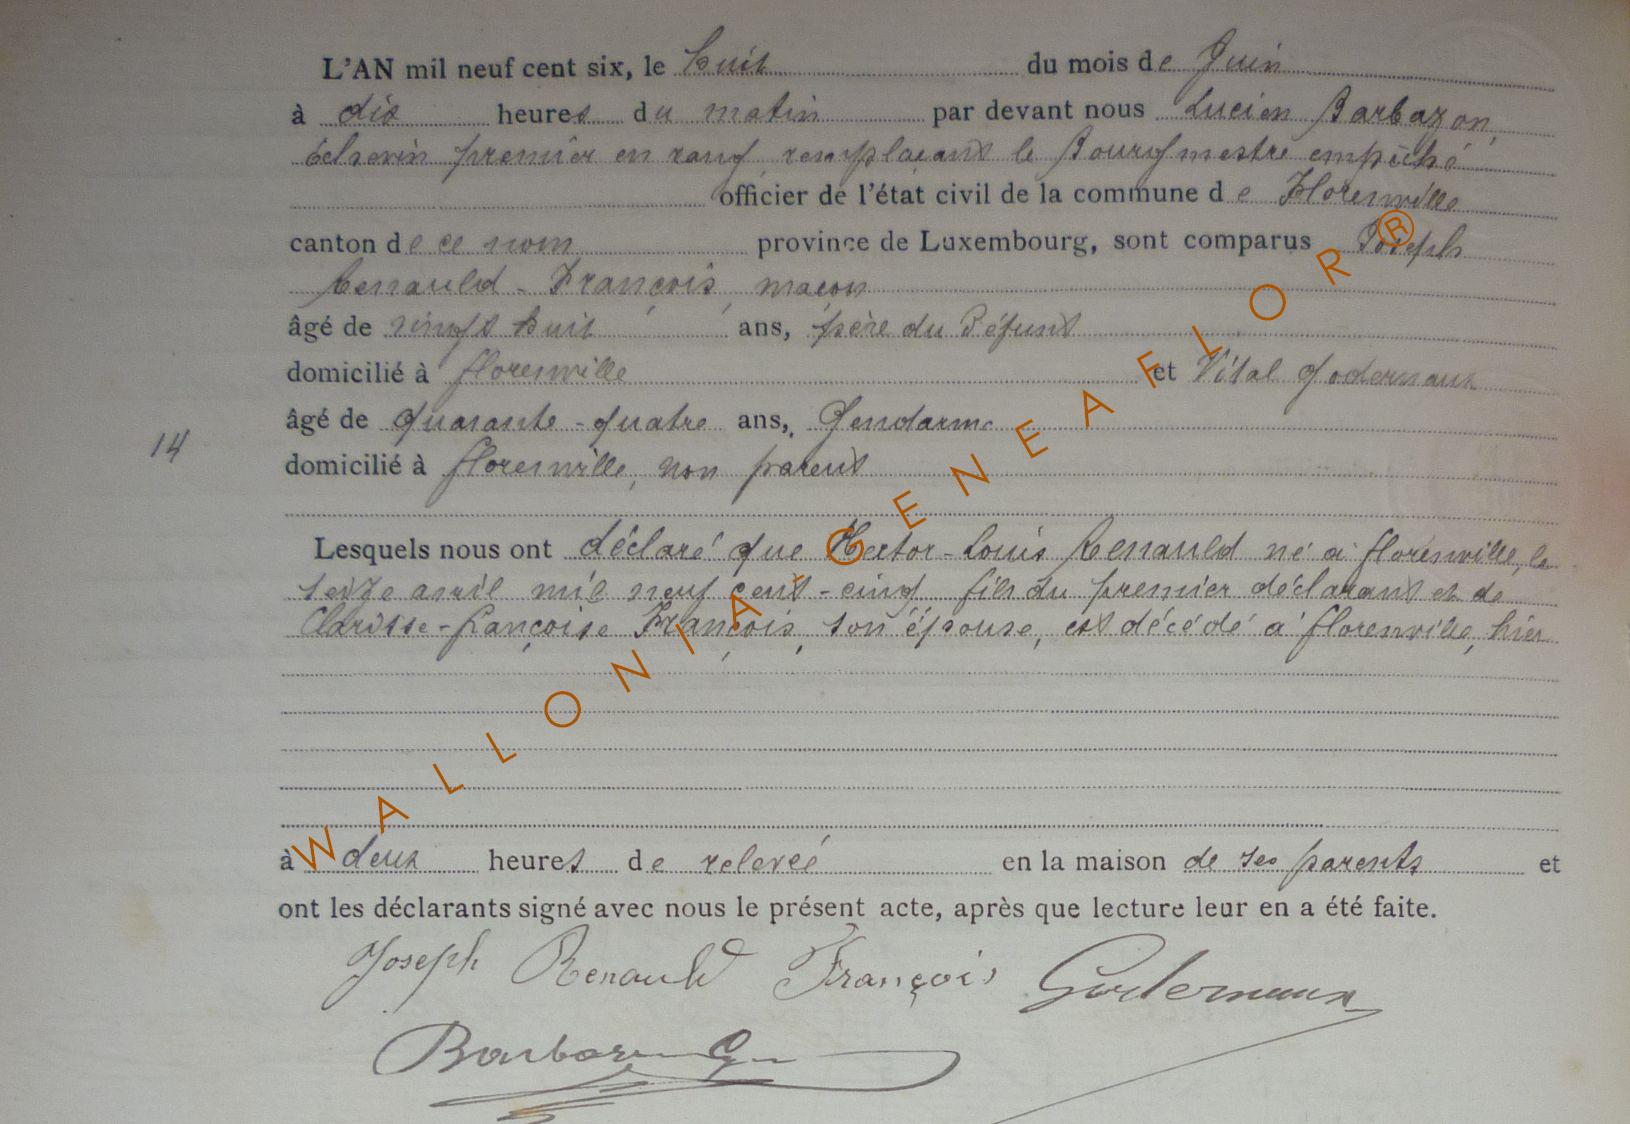 L'AN mil neuf cent six, le huit du mois de Juin
à dix heures du matin par devant nous Lucien Barbazon,
échevin premier en rang, remplaçant le Bourgmestre empêché,
officier de l'état civil de la commune de Florenville
canton de ce nom province de Luxembourg, sont comparus Joseph
Renauld - François, maçon
âgé de vingt huit ans, père du défunt
domicilié à Florenville et Vital Godernaux
âgé de quarante-quatre ans, Gendarme
14
domicilié à Florenville, non parent
Lesquels nous ont déclaré que Hector-Louis Renauld né à Florenville, le
seize avril mil neuf cent-cinq fils du premier déclarant et de
Clarisse-Françoise François, son épouse, est décédé à Florenville, hier
à deux heures de relevée en la maison de ses parents et
ont les déclarants signé avec nous le présent acte, après que lecture leur en a été faite.
Joseph Renauld François Godernaux
Barbazon
WALLONIA-GENEAFLOR ®